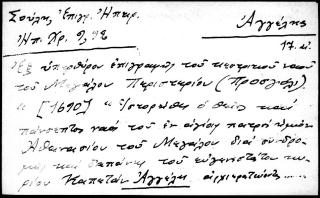 Σούλη, Ἐπιγρ. Ἠπειρ. Ἀγγέλης
Ἠπ. Χρ. 9, 92 17. αἰ.
Ἐξ ὑπερθύρου ἐπιγραφῆς τοῦ κεντρικοῦ ναοῦ
τοῦ Μεγάλου Περιστερίου (Προσγόλι)
"[1690] "Ἱστορήθη ὁ θεῖος καὶ
πάνσεπτος ναὸς τοῦ ἐν ἁγίοις πατρὸς ἡμῶν
Ἀθανασίου τοῦ Μεγάλου διὰ συνδρο-
μῆς καὶ δαπάνης τοῦ εὐγενεστάτου κυ-
ρίου Καπετὰν Ἀγγέλη ἀρχιερατεύοντος.....